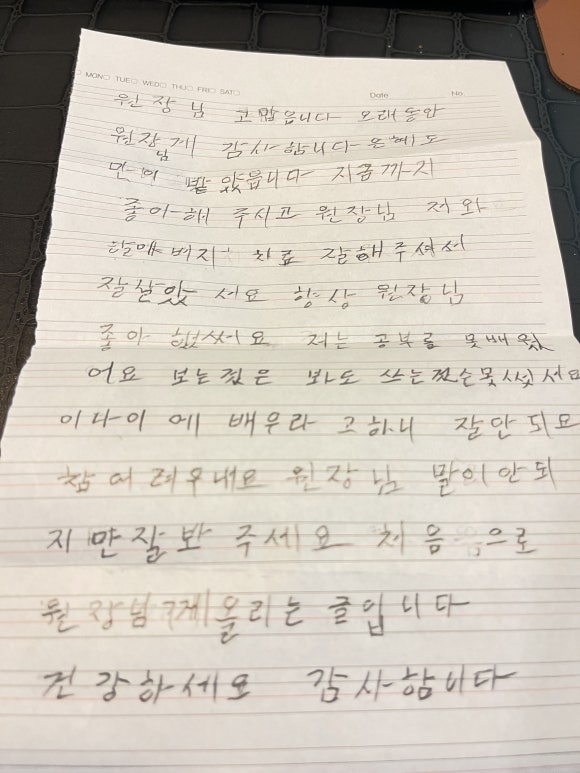 MON TUE WED THU FRI SAT Date No.
원장님 고맙습니다 오래동안
원장님게 감사합니다 은혜도
만이 밭았습니다 지금까지
좋아해 주시고 원장님 저와
할매버지 치료 잘해주셔서
잘살았서요 항상 원장님
좋아 했써요 저는 공부를 못배웠
어요 보는것은 봐도 쓰는것슨못썻서요
이나이에 배우라고하니 잘안되요
참 어려우내요 원장님 말이안되
지만잘봐 주세요 처음으로
원장님게올리는 글입니다
건강하세요 감사함니다